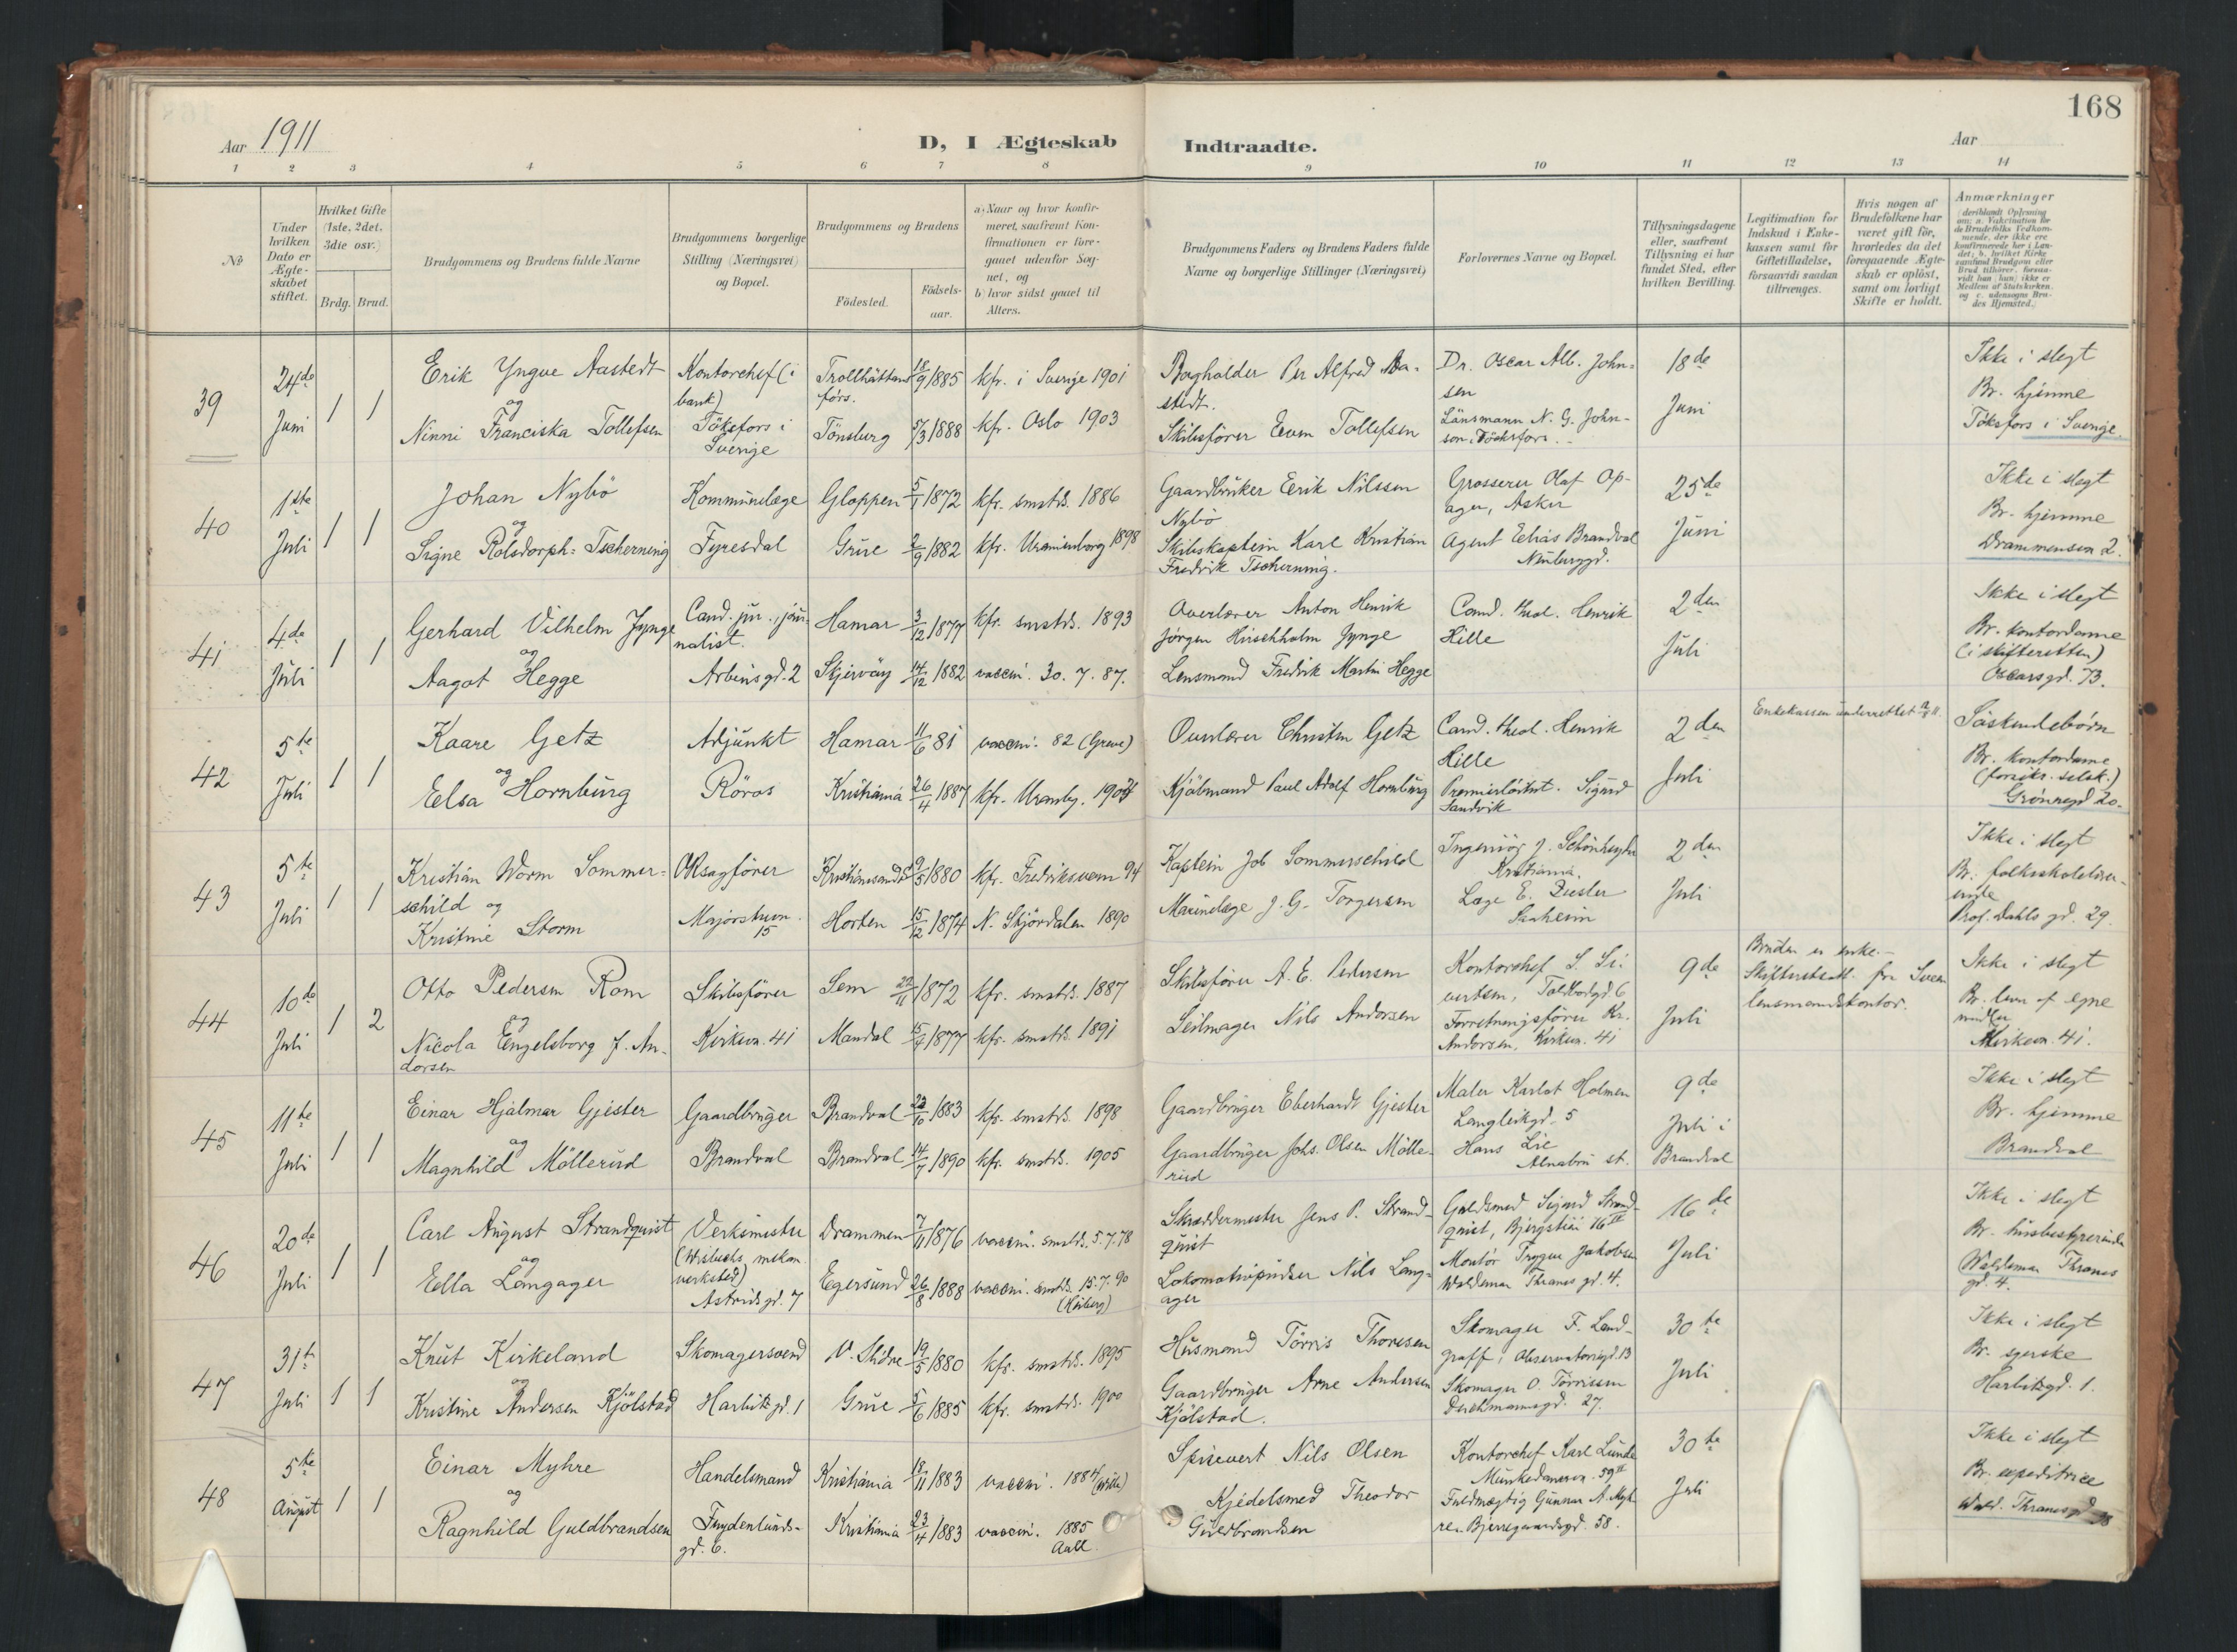 168
Aar 1911
D, I Ægteskab Indtraadte.
Aar
1 2 3 4 5 6 7 8 9 10 11 12 13 14
№
Under hvilken Dato er Ægte-skabet stiftet.
Hvilket Gifte (1ste, 2det, 3die osv.)
Brdg. Brud.
Brudgommens og Brudens fulde Navne
Brudgommens borgerlige Stilling (Næringsvei) og Bopæl.
Brudgommens og Brudens
Födested.
Födsels-aar.
a) Naar og hvor konfir-meret, saafremt Kon-firmationen er fore-gaaet udenfor Sog-net, og
b) hvor sidst gaaet til Alters.
Brudgommens Faders og Brudens Faders fulde Navne og borgerlige Stillinger (Næringsvei)
Forlovernes Navne og Bopæl.
Tillysningsdagene eller, saafremt Tillysning ei har fundet Sted, efter hvilken Bevilling.
Legitimation for Indskud i Enke-kassen samt for Giftetilladelse, forsaavidt saadan tiltrænges.
Hvis nogen af Brudefolkene har været gift för, hvorledes da det foregaaende Ægte-skab er oplöst, samt om lovligt Skifte er holdt.
Anmærkninger
(deriblandt Oplysning om: a. Vakcination for de Brudefolks Vedkom-mende, der ikke ere konfirmerede her i Lan-det; b. hvilket Kirke-samfund Brudgom eller Brud tilhörer, forsaa-vidt han (hun) ikke er Medlem af Statskirken og c. udensogns Bru-des Hjemsted.)
39
24de Juni
1 1
Erik Yngve Aastedt
og
Ninni Franciska Tollefsen
Kontorchef (i bank)
Töksfors i Sverige
Trollhättans fors. 18/9 1885
Tönsberg 5/3 1888
kfr. i Sverige 1901
kfr. Oslo 1903
Bogholder Per Alfred Aa-
stedt.
Skibsförer Even Tollefsen
Dr. Oscar Alb. John-
sen
Länsmann N. G. John-
son. Töcksfors.
18de Juni
Ikke i slegt
Br. hjemme
Töksfors i Sverige.
40
1ste Juli
1 1
Johan Nybö
og
Signe Rolsdorph-Tscherning
Kommunelæge
Fyresdal
Gloppen 5/1 1872
Grue 2/9 1882
kfr. smstds. 1886
kfr. Uranienborg 1898
Gaardbruker Eerik Nilssen
Nybö
Skibskaptein Karl Kristian
Fredrik Tscherning.
Grosserer Olaf Op-
ager, Asker
Agent Elias Brandval
Neuberggd.
25de Juni
Ikke i slegt
Br. hjemme
Drammensvn 2.
41
4de Juli
1 1
Gerhard Vilhelm Jynge
og
Aagot Hegge
Cand. jur., jour-
nalist.
Arbinsgd. 2
Hamar 3/12 1877
Skjervöy 14/12 1882
kfr. smstds. 1893
vaccin. 30. 7. 87.
Overlærer Anton Henrik
Jørgen Hirschholm Jynge
Lensmand Fredrik Martin Hegge
Cand. theol. Henrik
Hille
2den Juli
Ikke i slegt
Br. kontordame
(i skifteretten)
Oscarsgd. 73.
42
5te Juli
1 1
Kaare Getz
og
Eelsa Hornburg
Adjunkt
Röros
Hamar 11/6 81
Kristiania 26/4 1887
vaccin. 82 (Greve)
kfr. Uranbg. 1902
Overlærer Christen Getz
Kjöbmand Paul Adolf Hornburg
Cand. theol. Henrik
Hille
Premierlöitnt. Sigurd
Sandvik
2den Juli
Enkekassen underrettet
Söskendebörn
Br. kontordame
(forsikr. selsk.)
Grönnegd 20.
43
5te Juli
1 1
Kristian Worm Sommer-
schild og
Kristine Storm
ORsagförer
Majorstuvn.
15
Kristianssand 9/5 1880
Horten 15/12 1874
kfr. Fredriksvern 94
N. Skjördalen 1890
Kaptein Job Sommerschild
Marinelæge J. G. Torgersen
Ingeniör J. Schönheyder
Kristiania.
Læge E. Ziesler
Saaheim
2den Juli
Ikke i slegt
Br. folkskolelærer-
inde
Prof. Dahls gd. 29.
44
10de Juli
1 2
Otto Pedersen Rom
og
Nicola Engelsborg f. An-
dorsen
Skibsförer
Kirkevn. 41
Sem 22/11 1872
Mandal 1877
kfr. smstds. 1887
kfr. smstds. 1891
Skibsförer A. E. Pedersen
Seilmager Nils Andorsen
Kontorchef S. Si-
vertsen, Toldbodgd. 6
Forretningsförer Kr.
Andorsen, Kirkevn. 41
9de Juli
Bruden er enke.-
Skifterets att. fra
lensmandskontor.
Ikke i slegt
Br. lever af egne
midler
Kirkevn. 41.
45
11te Juli
1 1
Einar Hjalmar Gjester
og
Magnhild Möllerud
Gaardbruger
Brandval
Brandval 22/10 1883
Brandval 14/7 1890
kfr. smstds. 1898
kfr. smstds. 1905
Gaardbruger Eberhardt Gjester
Gaardbruger Johs. Olsen Mölle-
rud
Maler Karlot Holmen
Langleikgd. 5
Hans Lie
Alnabru st.
9de Juli i Brandval
Ikke i slegt
Br. hjemme
Brandval
46
20de Juli
1 1
Carl August Strandquist
og
Eella Langager
Verksmester
(Wisbechs mekan.
verksted)
Astridsgd. 7
Drammen 7/11 1876
Egersund 26/8 1888
vaccin. smstds. 5.7.78
vaccin. smstds. 15.7.90
(Heiberg)
Skræddermester Jens P. Strand-
quist
Lokomotivpudser Nils Lang-
ager
Guldsmed Sigurd Strand-
quist, Bjergstien 16 II
Montör Trygve Jakobsen
Waldemar Thranes gd. 4.
16de Juli
Ikke i slegt
Br. husbestyrerinde
Waldemar Thranes
gd. 4.
47
31te Juli
1 1
Knut Kirkeland
og
Kristine Andersen Kjölstad
Skomagersvend
Harbitzgd. 1
V. Slidre 19/5 1880
Grue 5/6 1885
kfr. smstds. 1895
kfr. smstds. 1900
Husmand Törris Thoresen
Gaardbruger Arne Andersen
Kjölstad.
Skomager F. Land-
graff, Observatoriegd. 13
Skomager O. Törrissen
Deichmannsgd. 27.
30te Juli
Ikke i slegt
Br. syerske
Harbitzgd. 1.
48
5te August
1 1
Einar Myhre
og
Ragnhild Guldbrandsen
Handelsmand
Frydenlunds-
gd. 6.
Kristiania 18/11 1883
Kristiania 23/4 1883
vaccin. 1884
vaccin. 1885
Aall.
Spisevert Nils Olsen
Kjedelsmed Theodor
Guldbrandsen
Kontorchef Karl Lunde
Munkedamsvn. 59 II
Fuldmægtig Gunnar A. Myh-
re. Bjerregaardsgd. 58.
30te Juli
Ikke i slegt
Br. expeditrice
Wald. Thranesgd